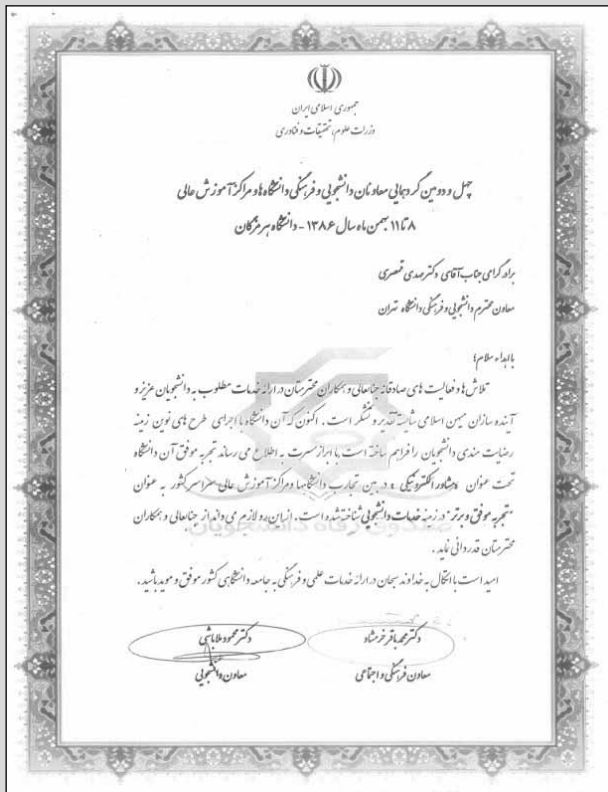 جمهوری اسلامی ایران
وزارت علوم، تحقیقات و فناوری
چهل و دومین گردهمایی معاونان دانشجویی و فرهنگی دانشگاه ها و مراکز آموزش عالی
۸ تا ۱۱ بهمن ماه سال ۱۳۸۶ - دانشگاه هرمزگان
برادر گرامی جناب آقای دکتر مهدی قمصری
معاون محترم دانشجویی و فرهنگی دانشگاه تهران
با اهداء سلام؛
تلاش ها و فعالیت های صادقانه جنابعالی و همکاران محترمتان در ارائه خدمات مطلوب به دانشجویان عزیز و
آینده سازان میهن اسلامی شایسته تقدیر و تشکر است. اکنون که آن دانشگاه با اجرای طرح های نوین زمینه
رضایت مندی دانشجویان را فراهم ساخته است با ابراز مسرت به اطلاع می رساند تجربه موفق آن دانشگاه
تحت عنوان «مشاور الکترونیکی» در بین تجارب دانشگاهها و مراکز آموزش عالی سراسر کشور به عنوان
"تجربه موفق و برتر" در زمینه خدمات دانشجویی شناخته شده است. از این رو لازم می داند از جنابعالی و همکاران
محترمتان قدردانی نماید.
امید است با اتکال به خداوند سبحان در ارائه خدمات علمی و فرهنگی به جامعه دانشگاهی کشور موفق و موید باشید.
صندوق رفاه دانشجویان
دکتر محمدباقر خرمشاد
معاون فرهنگی و اجتماعی
دکتر محمود ملاباشی
معاون دانشجویی